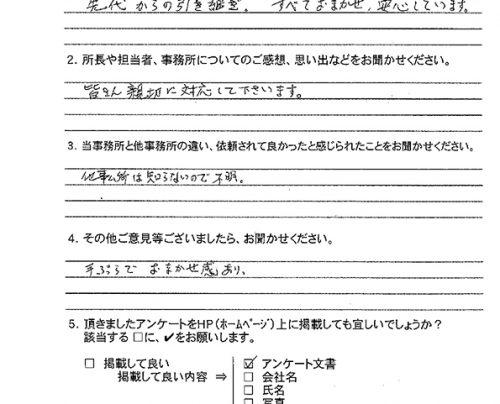 先代からの引き継ぎ。すべておまかせ、安心しています。
2. 所長や担当者、事務所についてのご感想、思い出などをお聞かせください。
皆さん親切に対応して下さいます。
3. 当事務所と他事務所の違い、依頼されて良かったと感じられたことをお聞かせください。
他事ム所は知らないので不明。
4. その他ご意見等ございましたら、お聞かせください。
手ぶらでおまかせ感あり、
5. 頂きましたアンケートをHP(ホームページ)上に掲載しても宜しいでしょうか?
該当する □に、✔をお願いします。
□ 掲載して良い ☑ アンケート文書
掲載して良い内容 ⇒ □ 会社名
□ 氏名
□ 写真